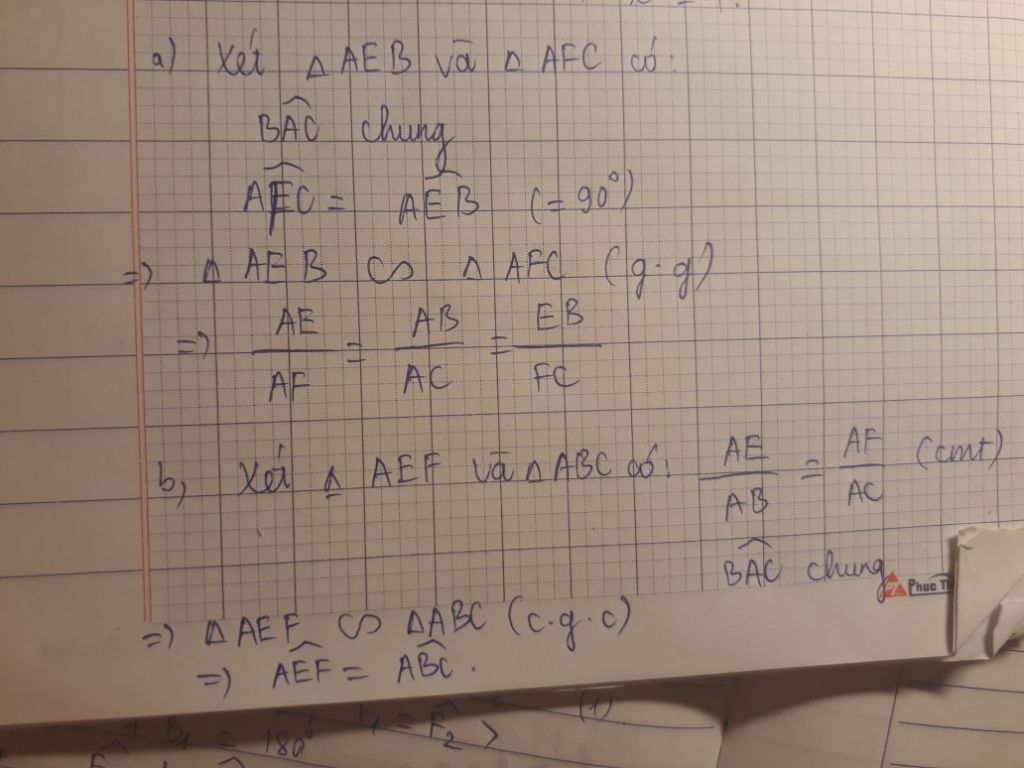 a) Xét △ AEB và △ AFC có:
BAC^ chung
AFC^ = AEB^ (= 90°)
=) △ AEB ∽ △ AFC (g.g)
=) AE/AF = AB/AC = EB/FC
b, Xét △ AEF và △ ABC có: AE/AB = AF/AC (cmt)
BAC^ chung
=) △AEF ∽ △ABC (c.g.c)
=) AEF^ = ABC^.
= 180° = F₂^ > (1)